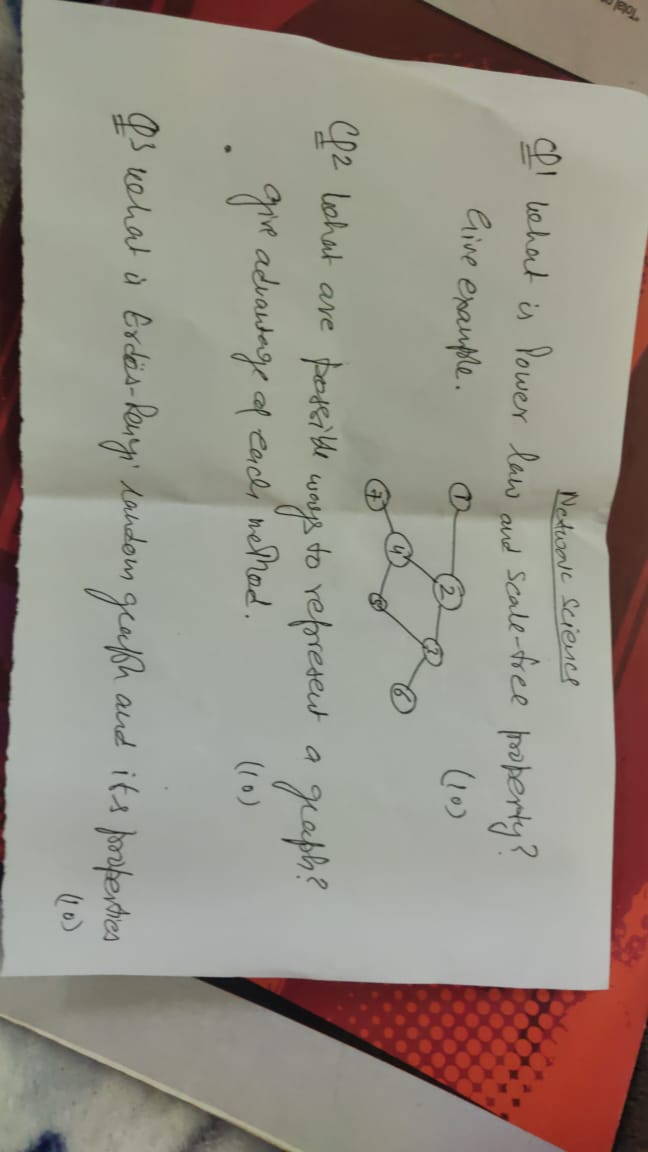 Network Science
Q1 What is Power law and scale-free property?
Give example. (10)
1 2
3
4 6
7 5
Q2 What are possible ways to represent a graph?
give advantage of each method. (10)
Q3 what is Erdös-Renyi random graph and its properties
(10)